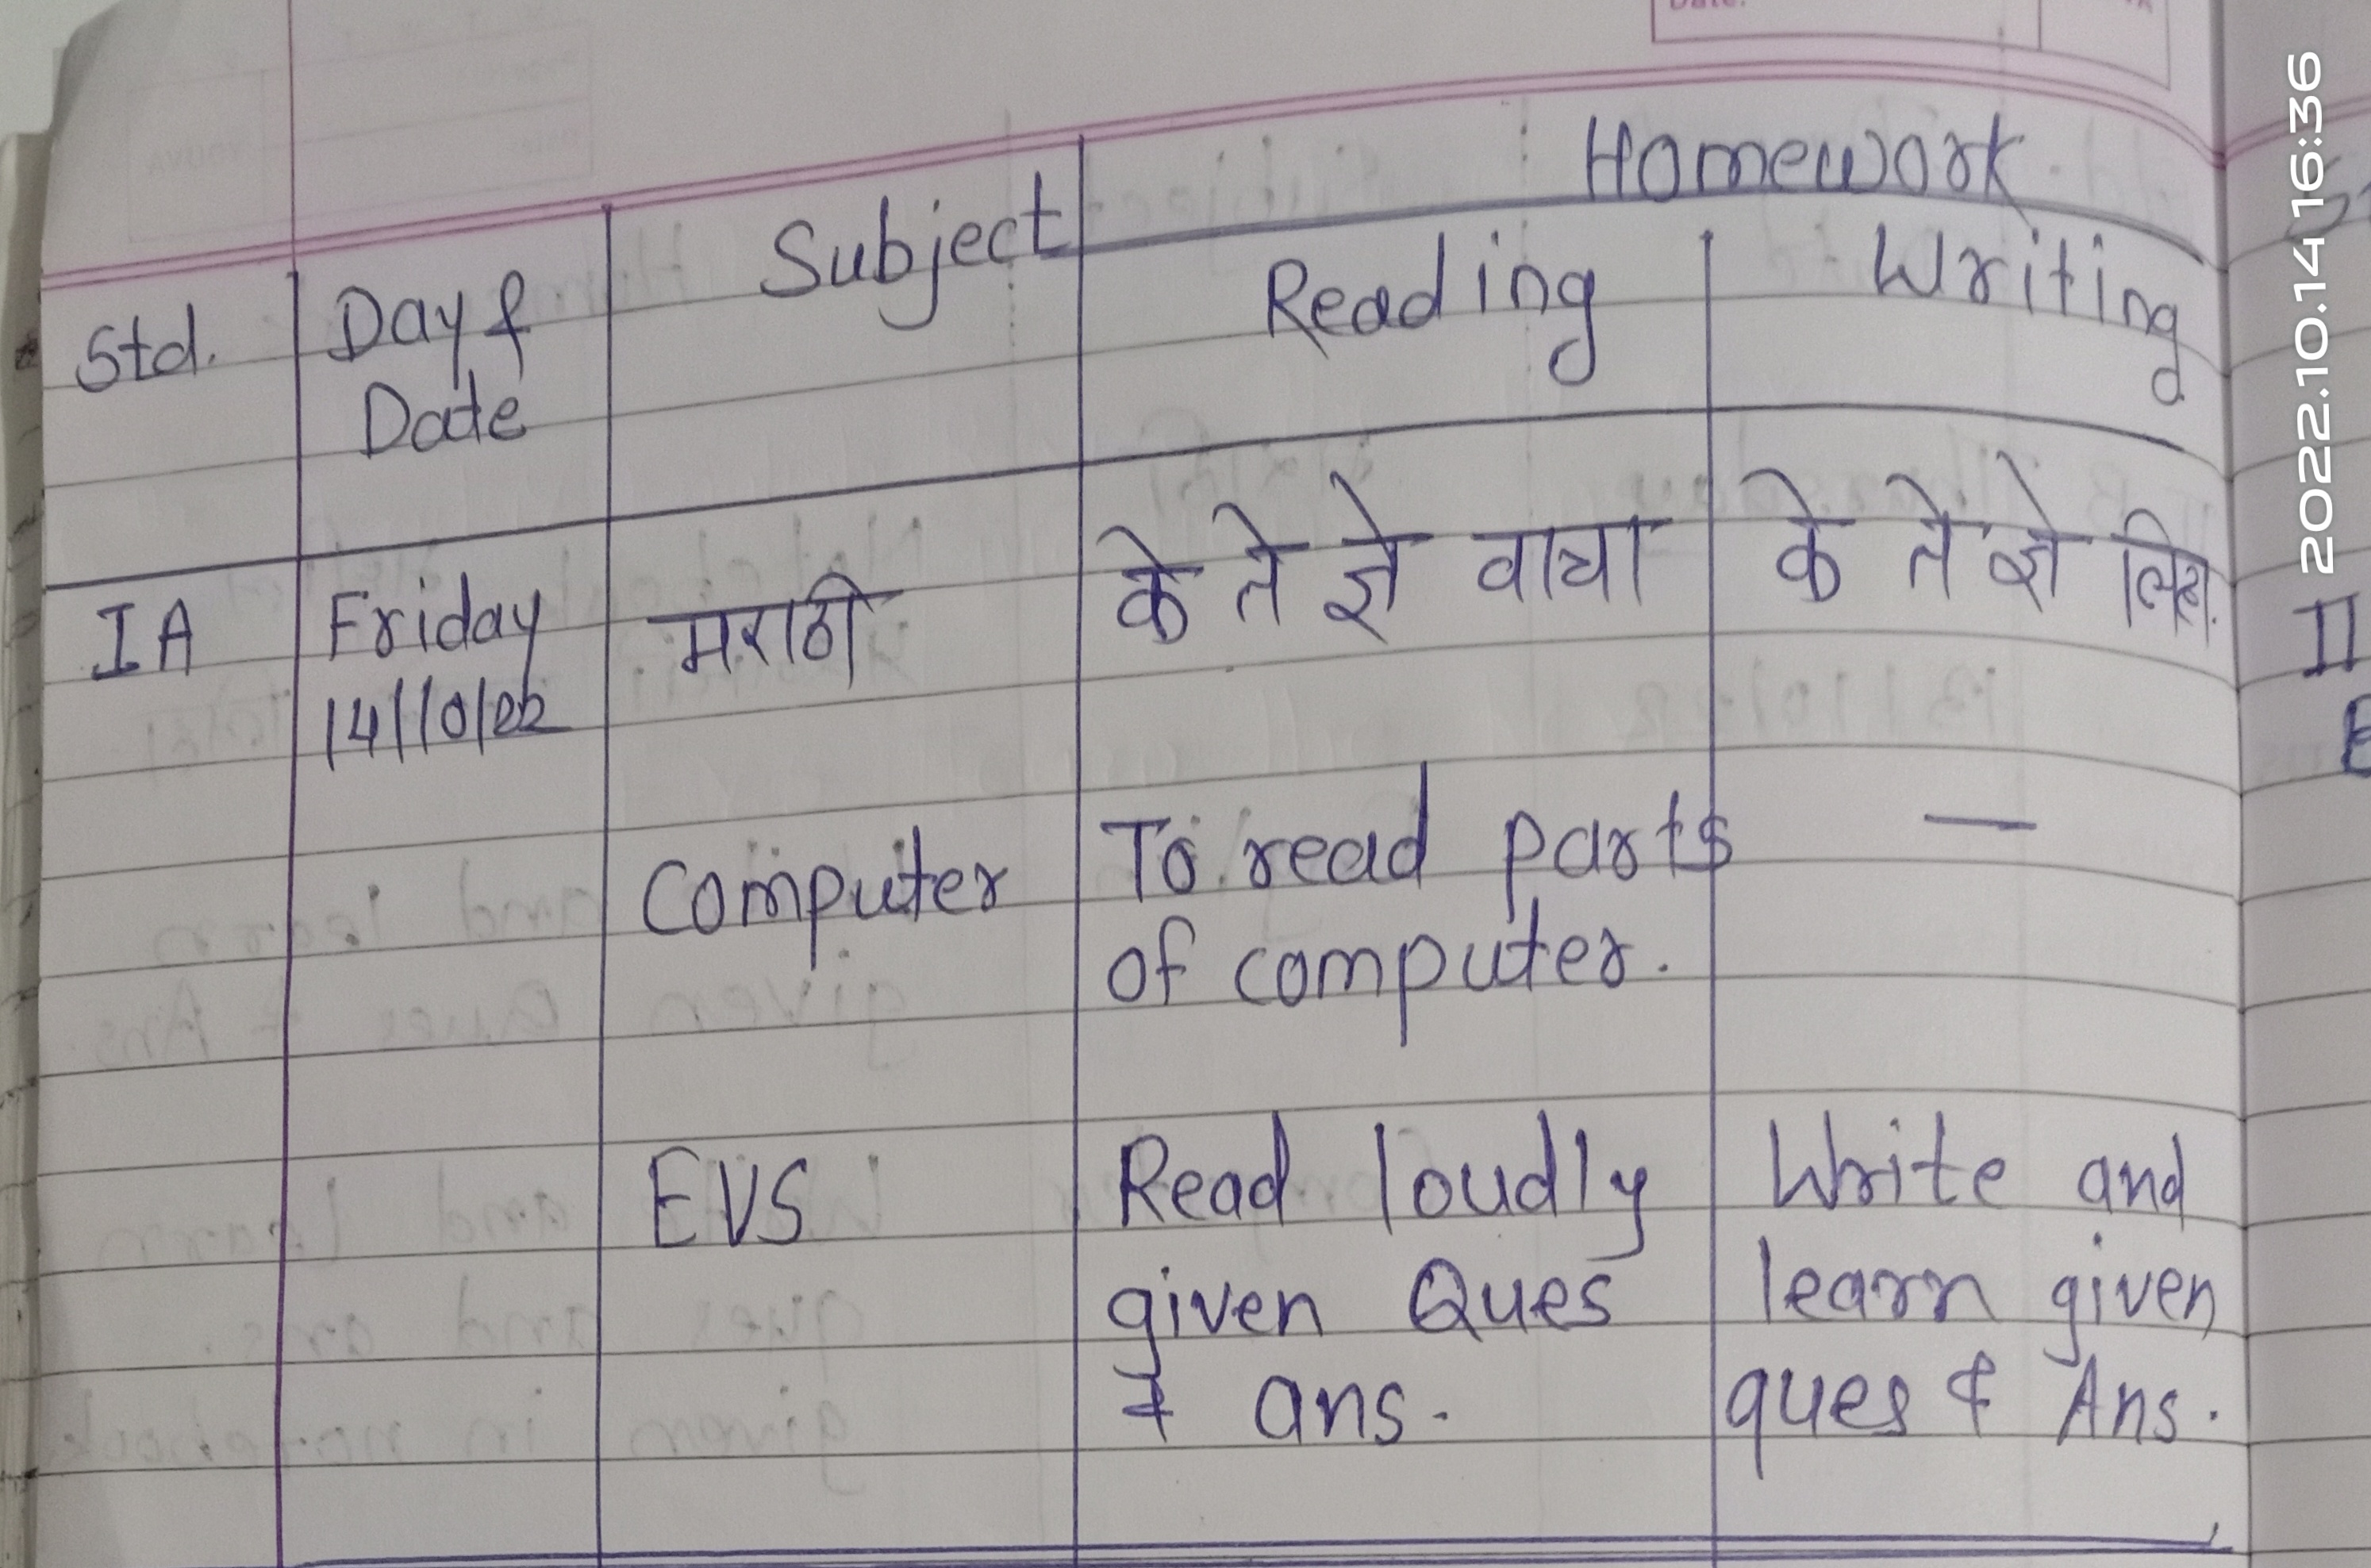 Homework
Std. Day & Subject Reading Writing
Date
IA Friday मराठी के ते ज्ञे वाचा के ते ज्ञे लिहा.
14/10/22
Computer To read parts —
of computer.
EVS Read loudly Write and
given Ques learn given
& ans. ques & Ans.
2022.10.14 16:36
II